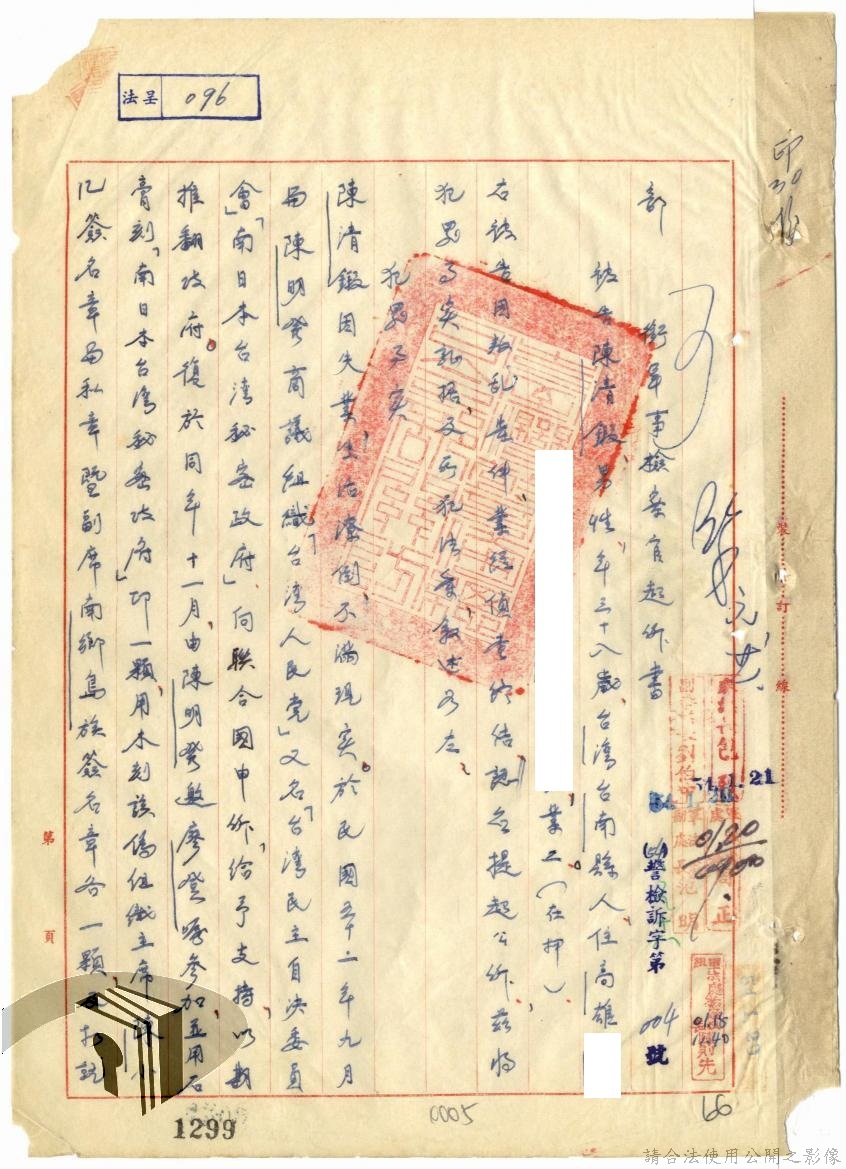 呈法 096
印
裝訂線
部
衔軍事檢察官起訴書
54.1.21
(54)警檢訴字第 004 號
被告陳清鍛男性年三十八歲台灣台南縣人住高雄
業工(在押)
右被告因叛乱案件業經偵查終结認應提起公訴兹将
犯罪事实証据及所犯法条敘述如左
犯罪事实
陳清鍛因失業生活潦倒不滿現实於民國五十二年九月
與陳明癸商議組織「台湾人民党」又名「台湾民主自决委員
會」「南日本台湾秘密政府」向联合國申訴「給予支持」以期
推翻政府復於同年十一月由陳明癸邀廖登嘱參加並用石
膏刻「南日本台湾秘密政府」印一顆用木刻該偽组織主席陳
簽名章與私章暨副席南鄉島族簽名章各一顆
第 頁
1299
0005
66
請合法使用公開之影像